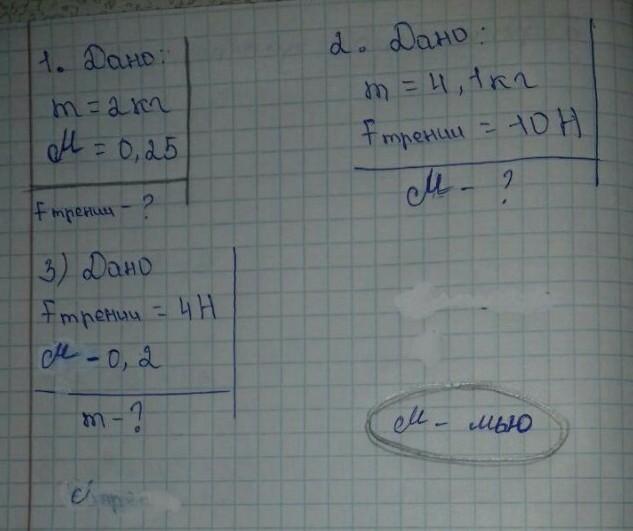 1. Дано:
m = 2 кг
M = 0,25
Fтрении - ?
2. Дано:
m = 4,1 кг
Fтрении = 10 Н
M - ?
3) Дано
Fтрении = 4 Н
M - 0,2
m - ?
M - мью